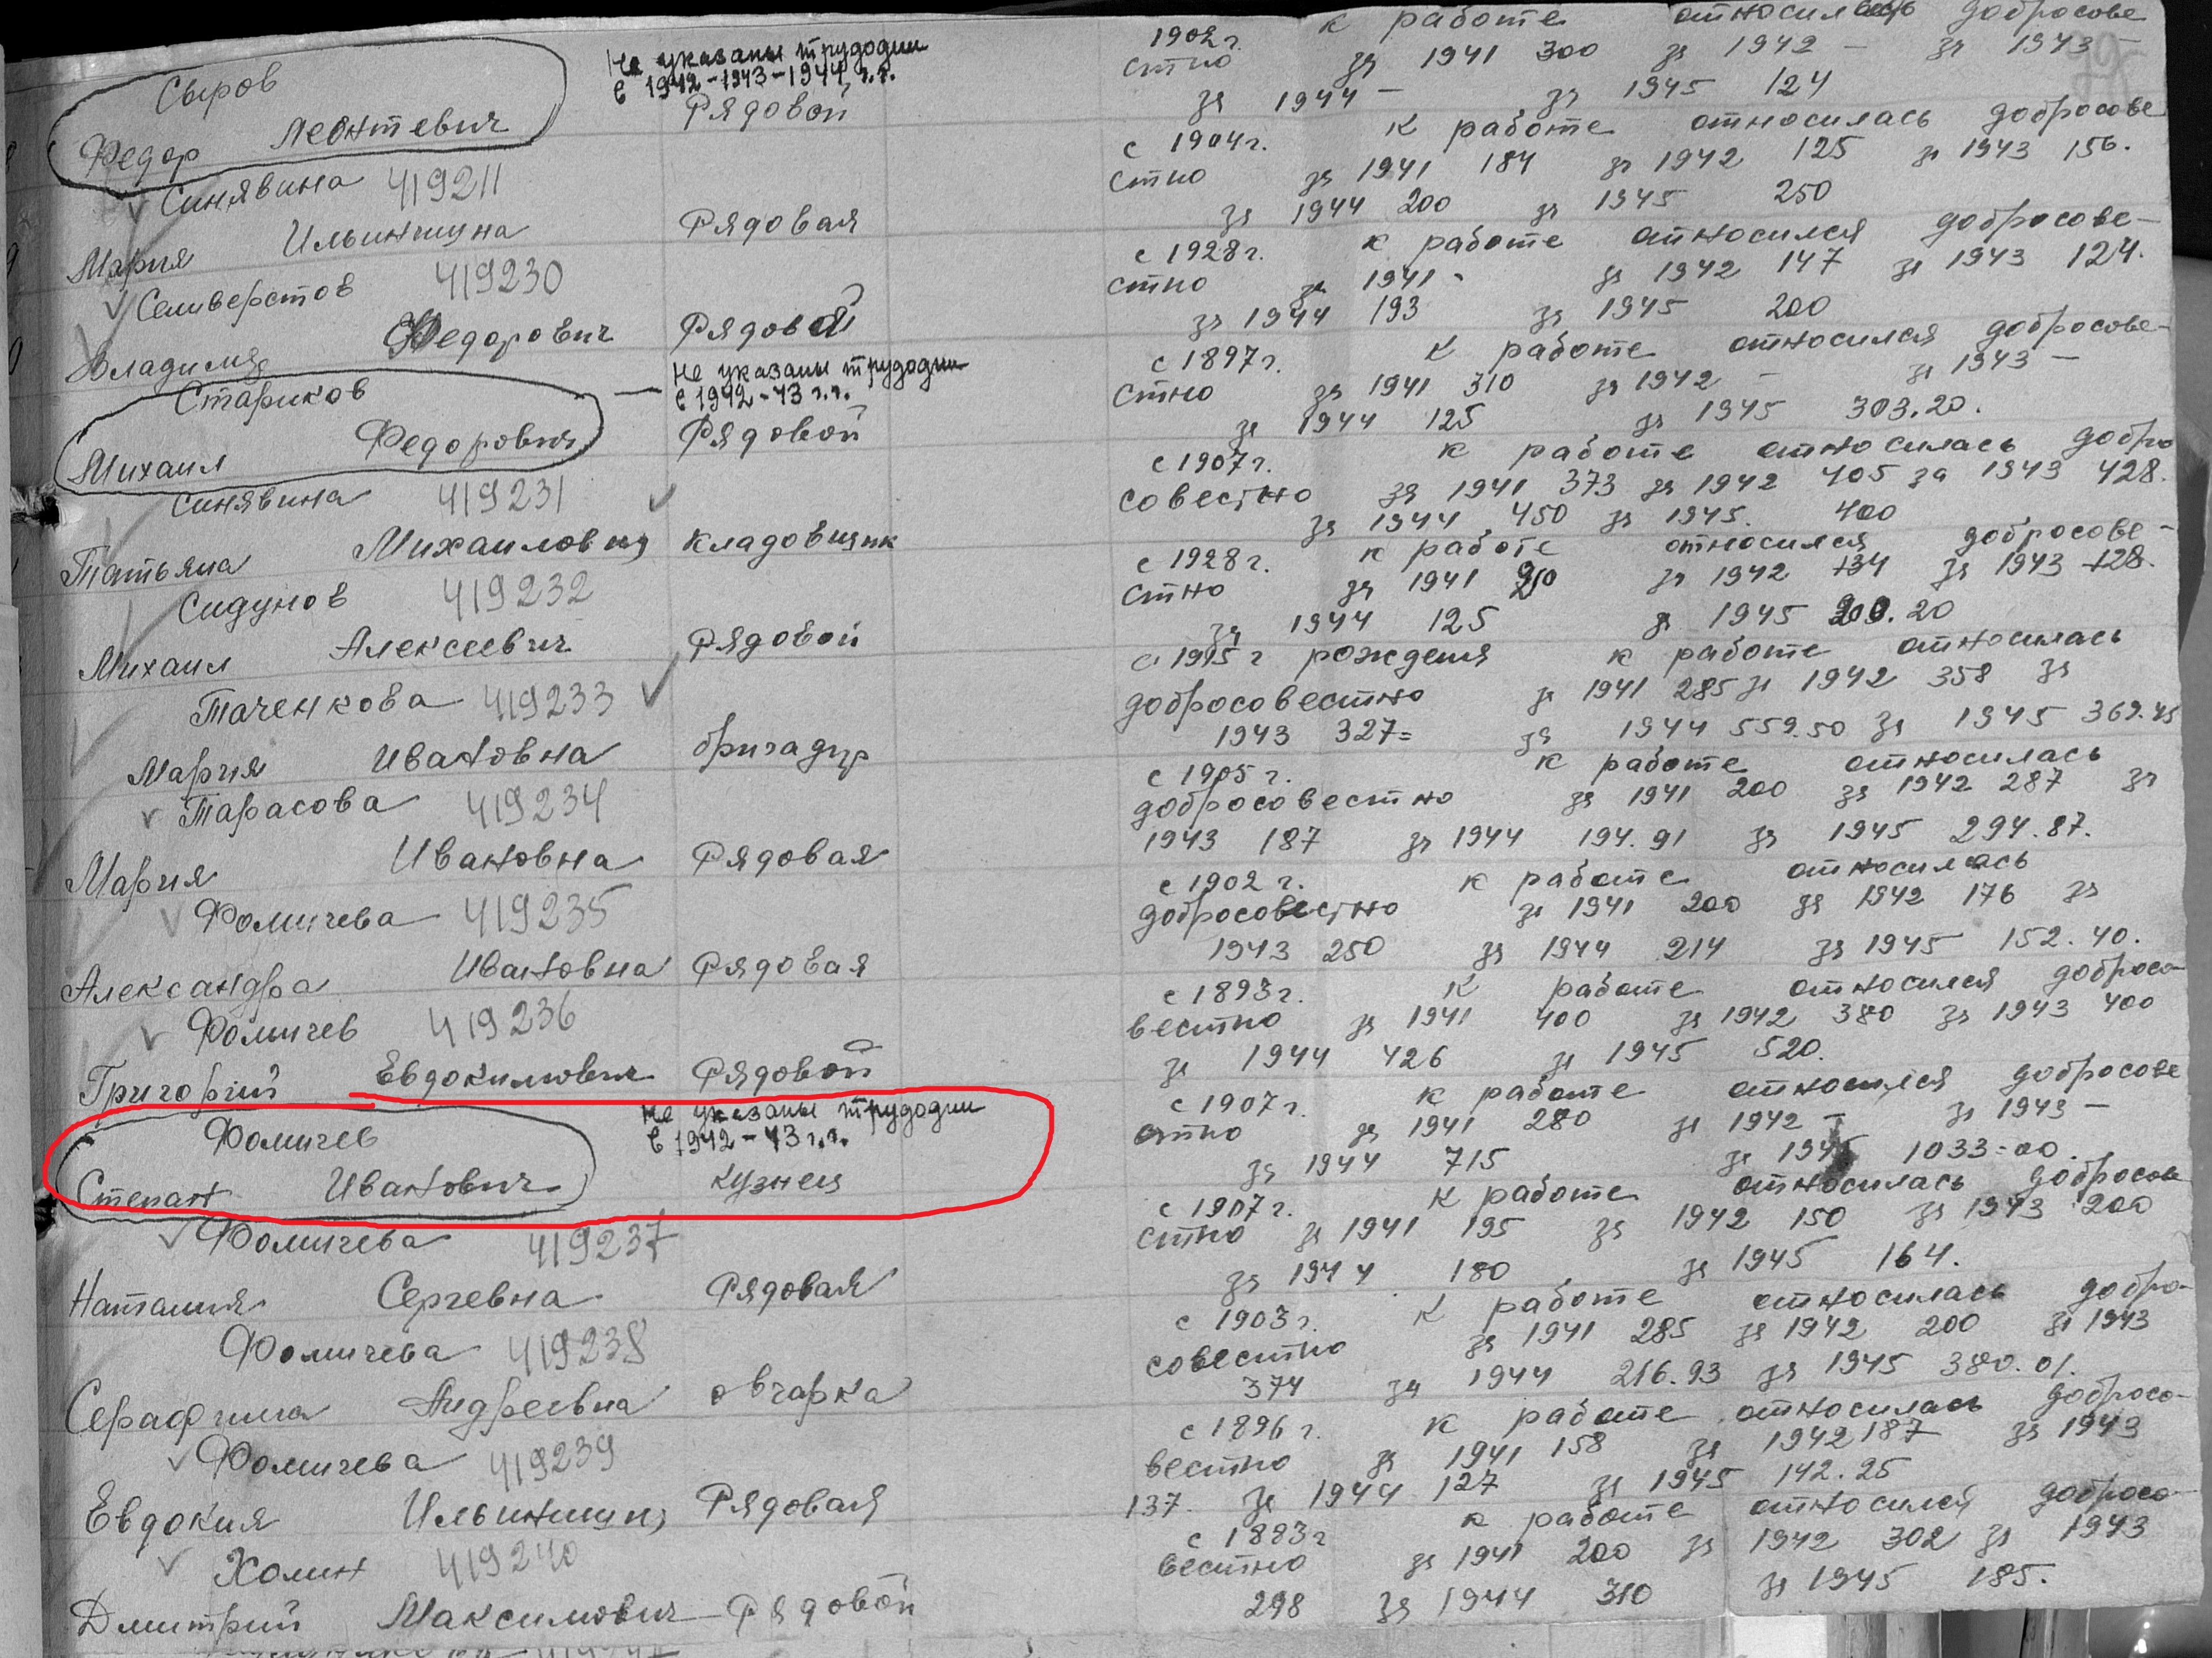 Сыров Не указаны трудодни 1902 г. к работе относилась добросове
в 1942-1943-1944 г.г. стно за 1941 300 за 1942 — за 1943 —
Федор Леонтевич Рядовой за 1944 — за 1945 124
Синявина 419211 с 1904 г. к работе относилась добросове
стно за 1941 184 за 1942 125 за 1943 156.
Мария Ильинична Рядовая за 1944 200 за 1945 250
Селиверстов 419230 с 1928 г. к работе относился добросове-
стно за 1941 - за 1942 147 за 1943 124.
Владимир Федорович Рядовой за 1944 193 за 1945 200
Стариков Не указаны трудодни с 1897 г. к работе относился добросове-
в 1942-43 г.г. стно за 1941 310 за 1942 — за 1943 —
Михаил Федорович Рядовой за 1944 125 за 1945 303.20.
Синявина 419231 с 1907 г. к работе относилась добро
совестно за 1941 373 за 1942 405 за 1943 428.
Татьяна Михаиловна кладовщик за 1944 450 за 1945. 400
Сидунов 419232 с 1928 г. к работе относился добросове-
стно за 1941 за 1942 134 за 1943 128.
Михаил Алексеевич Рядовой за 1944 125 за 1945 200.20
Таченкова 419233 с 1915 г рождения к работе относилась
добросовестно за 1941 285 за 1942 358 за
Мария Ивановна бригадир 1943 327= за 1944 559.50 за 1945 369.45
Тарасова 419234 с 1905 г. к работе относилась
добросовестно за 1941 200 за 1942 287 за
Мария Ивановна Рядовая 1943 187 за 1944 194.91 за 1945 294.87.
Фомичева 419235 с 1902 г. к работе относилась
добросовестно за 1941 200 за 1942 176 за
Александра Ивановна Рядовая 1943 250 за 1944 214 за 1945 152.40.
Фомичев 419236 с 1893 г. к работе относился добросо-
вестно за 1941 400 за 1942 380 за 1943 400
Григорий Евдокимович Рядовой за 1944 426 за 1945 520.
Фомичев Не указаны трудодни с 1907 г. к работе относился добросове
в 1942-43 г.г. стно за 1941 280 за 1942 — за 1943 —
Степан Иванович кузнец за 1944 715 за 1945 1033=00.
Фомичева 419237 с 1907 г. к работе относилась добросове
стно за 1941 195 за 1942 150 за 1943 200
Наталия Сергевна Рядовая за 1944 180 за 1945 164.
Фомичева 419238 с 1903 г. к работе относилась добро-
совестно за 1941 285 за 1942 200 за 1943
Серафима Андреевна овчарка 374 за 1944 216.93 за 1945 380.01.
Фомичева 419239 с 1896 г. к работе относилась добросо-
вестно за 1941 158 за 1942 187 за 1943
Евдокия Ильинична Рядовая 137. за 1944 127 за 1945 142.25
Холин 419240 с 1883 г к работе относился добросо-
вестно за 1941 200 за 1942 302 за 1943
Дмитрий Максимович Рядовой 298 за 1944 310 за 1945 185.